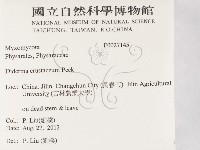 國立自然科學博物館
NATIONAL MUSEUM OF NATURAL SCIENCE
TAICHUNG, TAIWAN, R.O.CHINA
Myxomycota
Physarales, Physaraceae
Diderma crustaceum Peck
Loc.: China: Jilin: Changchun City (長春市) Jilin Agricultural
University (吉林農業大學)
on dead stem & leave
Col.: P. Liu
Date: Aug. 27, 2013
Det.: P. Liu